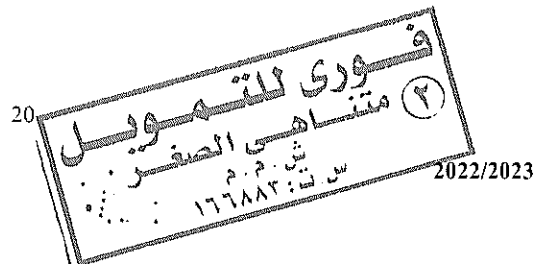 20
فورى للتمويل
متناهى الصغر ٢
ش . م . م
س . ت : ١٦٦٨٨٣
2022/2023